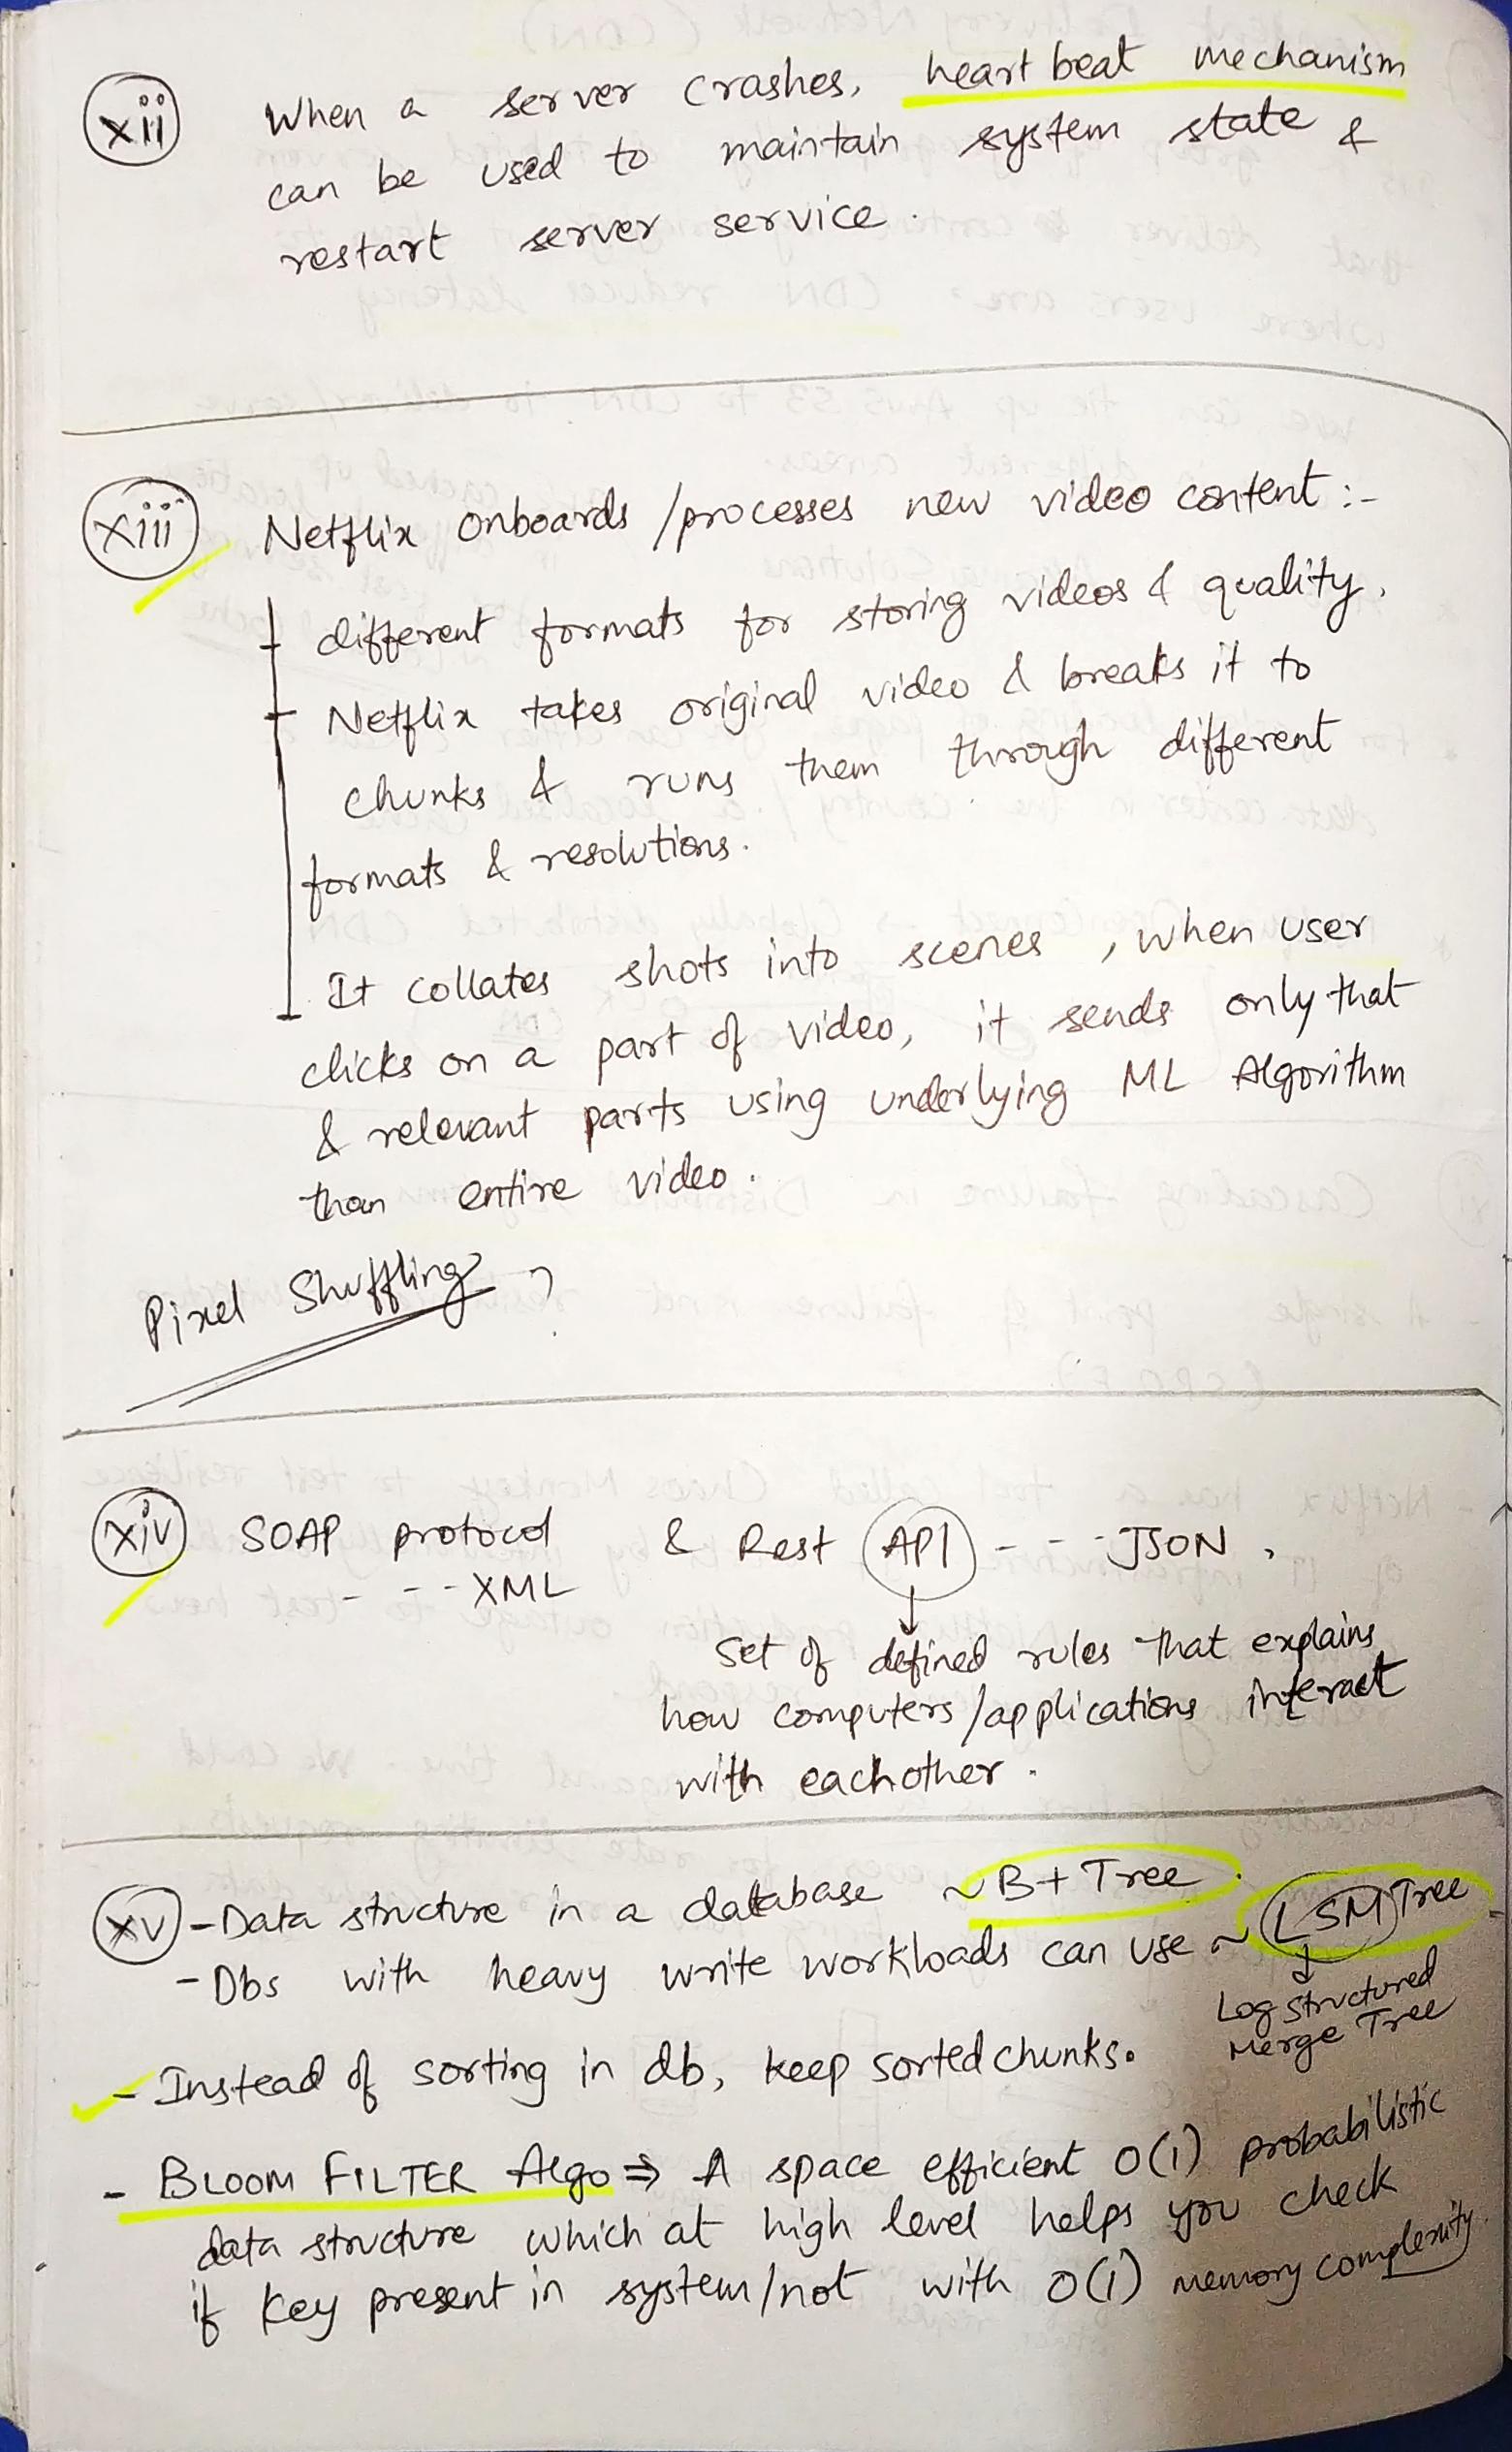 xii When a server crashes, heart beat mechanism
can be used to maintain system state &
restart server service.
xiii Netflix onboards /processes new video content :-
different formats for storing videos & quality.
Netflix takes original video & breaks it to
chunks & runs them through different
formats & resolutions.
It collates shots into scenes , when user
clicks on a part of video, it sends only that
& relevant parts using underlying ML Algorithm
than entire video.
Pixel Shuffling ?
xiv SOAP protocol & Rest API - - - JSON ,
- - - - XML
Set of defined rules that explains
how computers/applications interact
with eachother .
xv - Data structure in a database ~ B+ Tree .
- Dbs with heavy write workloads can use ~ LSM Tree
Log Structured
Merge Tree
- Instead of sorting in db, keep sorted chunks.
- BLOOM FILTER Algo ⇒ A space efficient O(1) probabilistic
data structure which at high level helps you check
if key present in system/not with O(1) memory complexity.